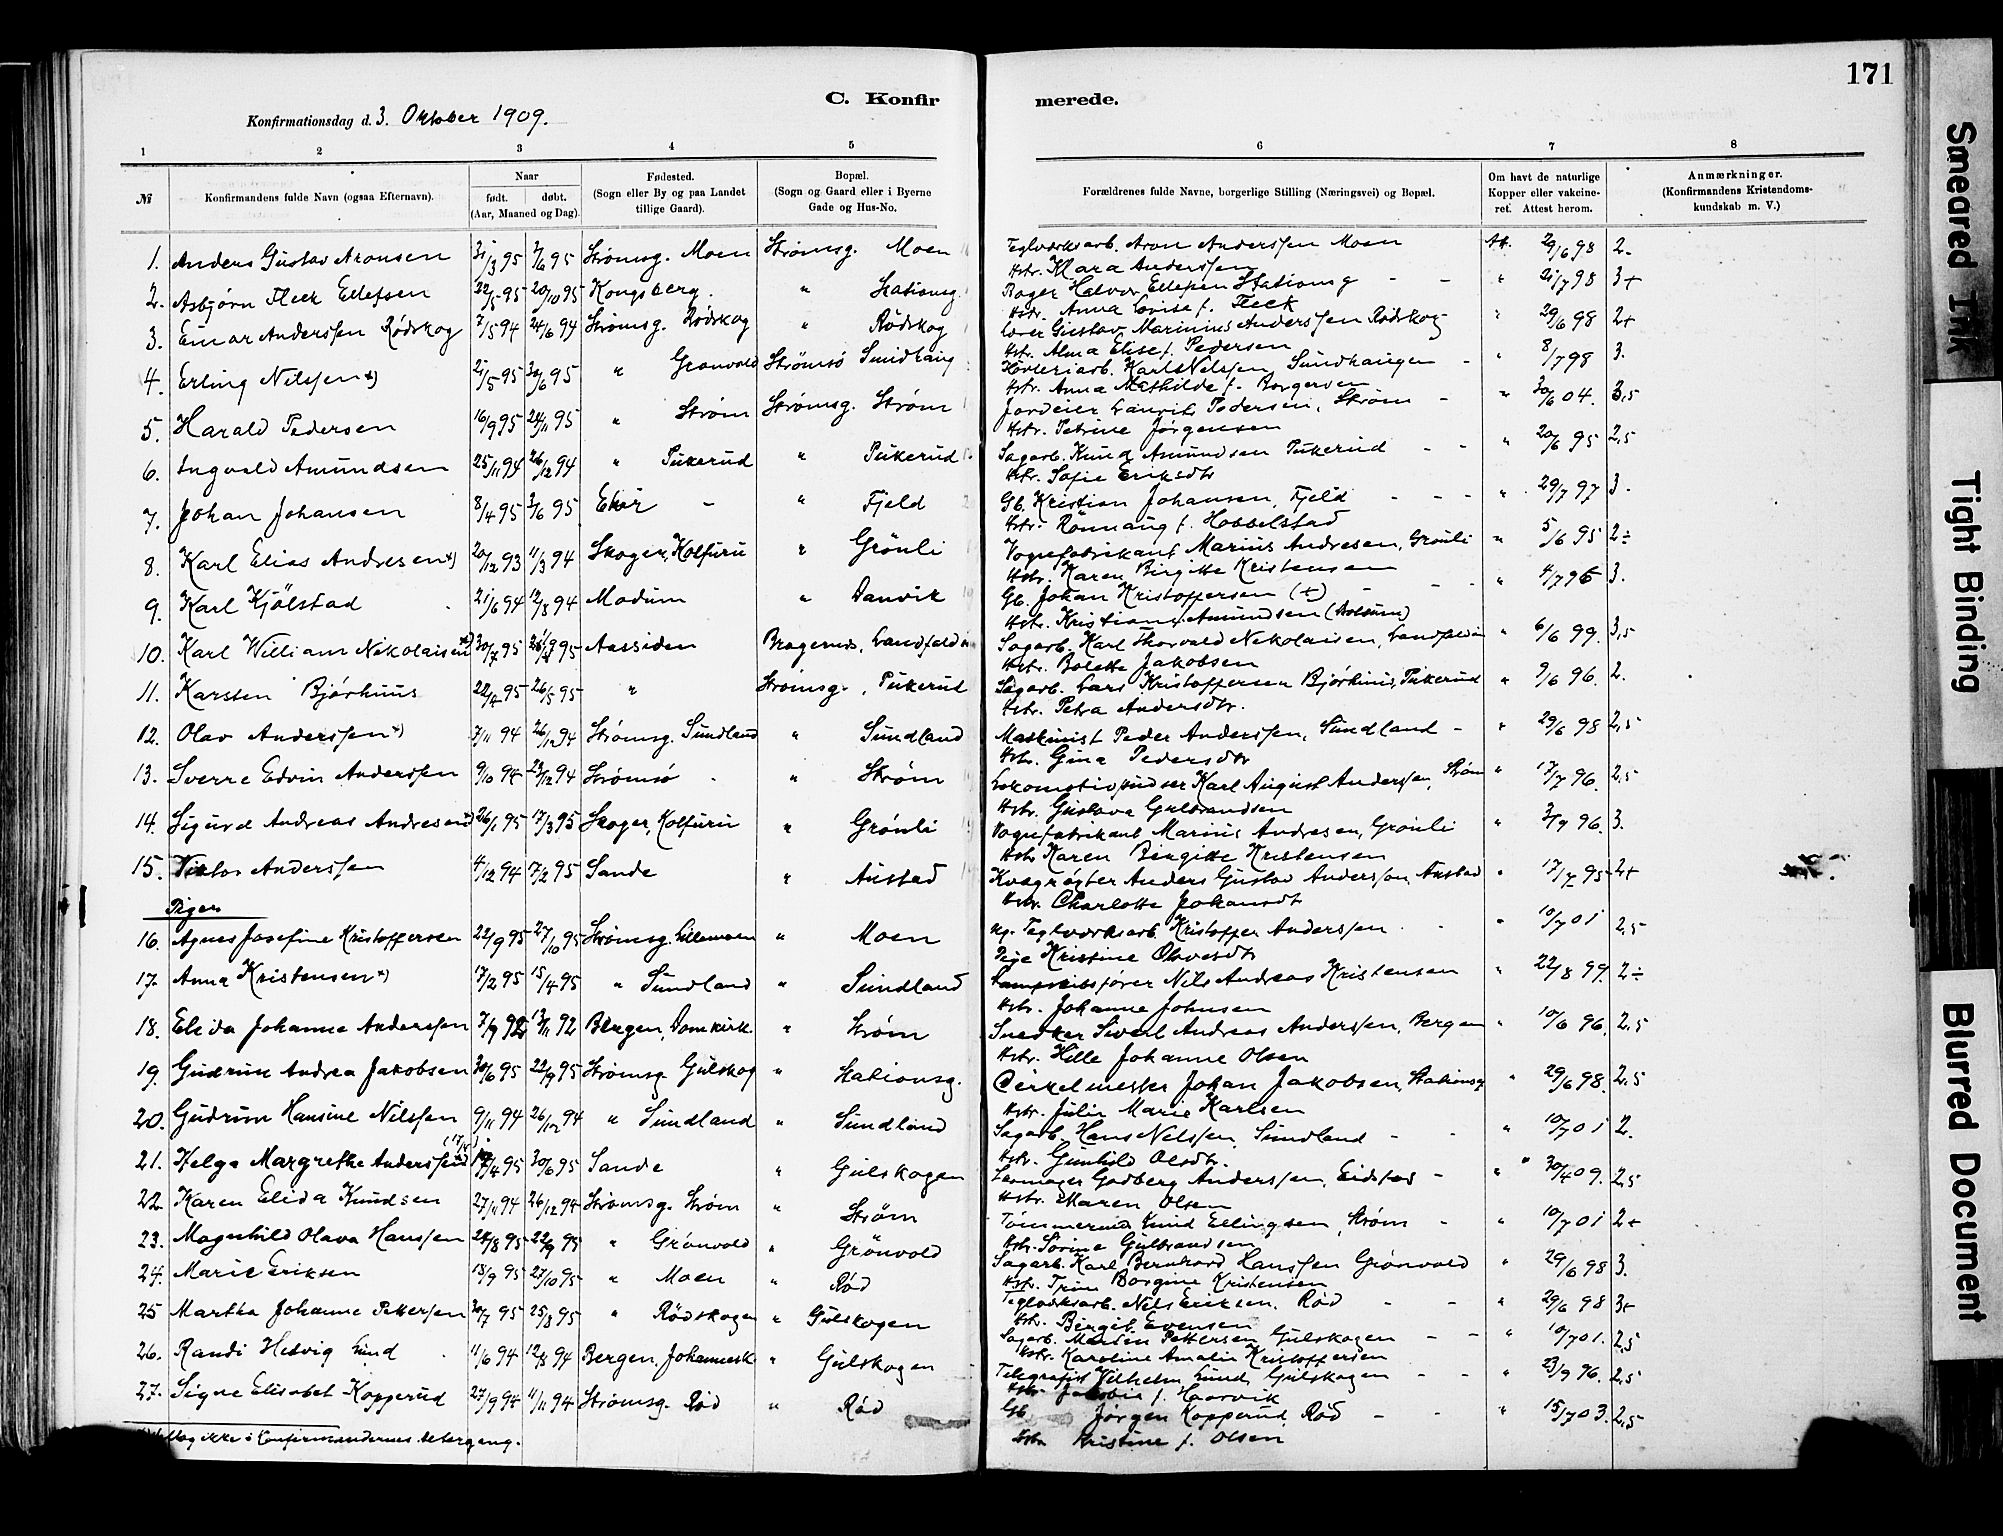 171
C. Konfirmerede.
Konfirmationsdag d. 3. Oktober 1909.
1 2 3 4 5 6 7 8
№
Konfirmandens fulde Navn (ogsaa Efternavn).
Naar
født. døbt.
(Aar, Maaned og Dag).
Fødested.
(Sogn eller By og paa Landet
tillige Gaard).
Bopæl.
(Sogn og Gaard eller i Byerne
Gade og Hus-No.
Forældrenes fulde Navne, borgerlige Stilling (Næringsvei) og Bopæl.
Om havt de naturlige
Kopper eller vakcine-
ret. Attest herom.
Anmærkninger.
(Konfirmandens Kristendoms-
kundskab m. V.)
1. Anders Gustav Aronsen 31/3 95 3/6 95 Strømsg. Moen Strømsg. Moen Teglverksarb. Aron Anderssen Moen Att. 29/6 98 2-
Hstr. Klara Anderssen
2. Asbjørn Fleck Ellefsen 22/5 95 20/10 95 Kongsberg. " Stationsg. Bager Halvor Ellefsen Stationsg - - " 21/7 98 3+
Hstr. Anna Lovise f. Fleck
3. Einar Anderssen Rødskog 7/5 94 24/6 94 Strømsg. Rødskog " Rødskog Lærer Gustav Marinius Anderssen Rødskog " 29/6 98 2+
Hstr. Alma Elise f. Pedersen
4. Erling Nilssen +) 21/5 95 30/6 95 " Grønvold Strømsø Smidhaug Høvleriarb. Karl Nilssen Sundhaugen - " 8/7 98 3.
Hstr. Anna Mathilde f. Borgersen
5. Harald Pedersen 16/9 95 24/11 95 " Strøm Strømsg. Strøm Jordeier Laurits Pedersen, Strøm - " 30/6 04. 3,5
Hstr. Petrine Jørgensen
6. Ingvald Amundsen 25/11 94 26/12 94 " Pukerud " Pukerud Sagarb. Knud Amundsen Pukerud - - " 20/6 95 2,5
Hstr. Sofie Eriksdtr
7. Johan Johansen 8/4 95 3/6 95 Eker - " Fjeld Gb. Kristian Johansen, Fjeld - - - " 29/7 97 3.
Hstr. Rønnaug f. Hobbelstad
8. Karl Elias Andresen +) 20/12 93 11/3 94 Skoger, Kolfuru " Grønli Vognfabrikant Marius Andresen, Grønli " 5/6 95 2÷
Hstr. Karen Birgitte Kristensen
9. Karl Kjølstad 21/6 94 12/8 94 Modum " Danvik Gb. Johan Kristoffersen (+) - - - " 4/7 95 3.
Hstr. Kristiane Amundsen
10. Karl William Nikolaisen +) 30/7 95 95 Aassiden Bragernes, Landfald Sagarb. Karl Thorvald Nikolaisen, Landfald " 6/6 99. 3,5
Hstr. Bolette Jakobsen
11. Karsten Bjørhuus 22/4 95 26/5 95 " Strømsg., Pukerud Sagarb. Lars Kristoffersen Bjørhuus, Pukerud " 9/6 96. 2.
Hstr. Petra Andersdtr.
12. Olav Anderssen +) 7/11 94 26/12 94 Strømsg. Sundland " Sundland Maskinist Peder Anderssen, Sundland - " 29/6 98 2,5
Hstr. Gina Pedersdtr
13. Sverre Edvin Anderssen 9/10 94 23/12 94 Strømsø - " Strøm Lokomotivpudser Karl August Anderssen, Strøm " 17/7 96. 2,5
Hstr. Gustava Gulbrandsen
14. Sigurd Andreas Andresen +) 26/1 95 17/3 95 Skoger, Kolfuru " Grønli Vognfabrikant Marius Andresen, Grønli " 3/9 96. 3.
Hstr. Karen Birgitte Kristensen
15. Viktor Anderssen 4/12 94 17/2 95 Sande " Austad Kvægrøgter Anders Gustav Anderssen, Austad " 17/7 95 2+
Hstr. Charlotte Johansdt
Piger
16. Agnes Josefine Kristoffersen 22/9 95 27/10 95 Strømsg. Lillemoen " Moen Ug. Teglverksarb. Kristoffer Anderssen - - " 10/7 01 2,5
Pige Kristine Olavesdtr
17. Anna Kristensen +) 17/2 95 15/4 95 " Sundland " Sundland Nils Andreas Kristensen " 22/8 99. 2÷
Hstr. Johanne Johnsen
18. Elida Johanne Anderssen 7/9 92 13/11 92 Bergen, Domkirk. " Strøm Snedker Sivert Andreas Anderssen, Bergen " 10/6 96. 2,5
Hstr. Hille Johanne Olsen
19. Gudrun Andrea Jakobsen 30/6 95 22/9 95 Strømsg. Gulskog " Stationsg. Cirkelmester Johan Jakobsen, Stationsg " 29/6 98. 2,5
Hstr. Julie Marie Karlsen
20. Gudrun Hansine Nilssen 9/11 94 26/12 94 " Sundland " Sundland Sagarb. Hans Nilssen, Sundland - - " 10/7 01 2.
Hstr. Gunhild Olsdtr.
21. Helga Margrethe Anderssen +) 17/4 95 30/6 95 Sande " Gulskogen Garmager Godberg Anderssen, Eidsfos - " 30/4 09. 2,5
Hstr. Maren Olsen
22. Karen Elida Knudsen 27/11 94 26/12 94 Strømsg. Strøm " Strøm Tømmermand Knud Ellingsen, Strøm - " 10/7 01 2+
Hstr. Sørine Gulbrandsen
23. Magnhild Olava Hanssen 24/8 95 22/9 95 " Grønvold " Grønvold Sagarb. Karl Bernhard Hanssen Grønvold " 29/6 98 3.
Hstr. Trine Borgine Kristensen
24. Marie Eriksen 18/9 95 27/10 95 " Moen " Rød Teglverksarb. Nils Eriksen. Rød - - " 29/6 98 3+
Hstr. Birgit Evensen
25 Martha Johanne Pettersen 30/7 95 25/8 95 " Rødskogen " Gulskogen Sagarb. Martin Pettersen Gulskogen - - " 10/7 01. 2,5
Hstr. Karoline Amalie Kristoffersen
26. Randi Hedvig Lund 11/6 94 12/8 94 Bergen, Johannesk " Gulskogen Telegrafist Vilhelm Lund, Gulskogen - - " 23/9 96. 2,5
Hstr. Jakobia f. Haarvik
27. Signe Elisabet Kopperud 27/9 94 11/11 94 Strømsg. Rød " Rød Gb. Jørgen Kopperud, Rød - - " 15/7 03. 2,5
Hstr. Kristine f. Olsen
ikke i Konfirmandernes altergang.
Smeared Ink
Tight Binding
Blurred Document